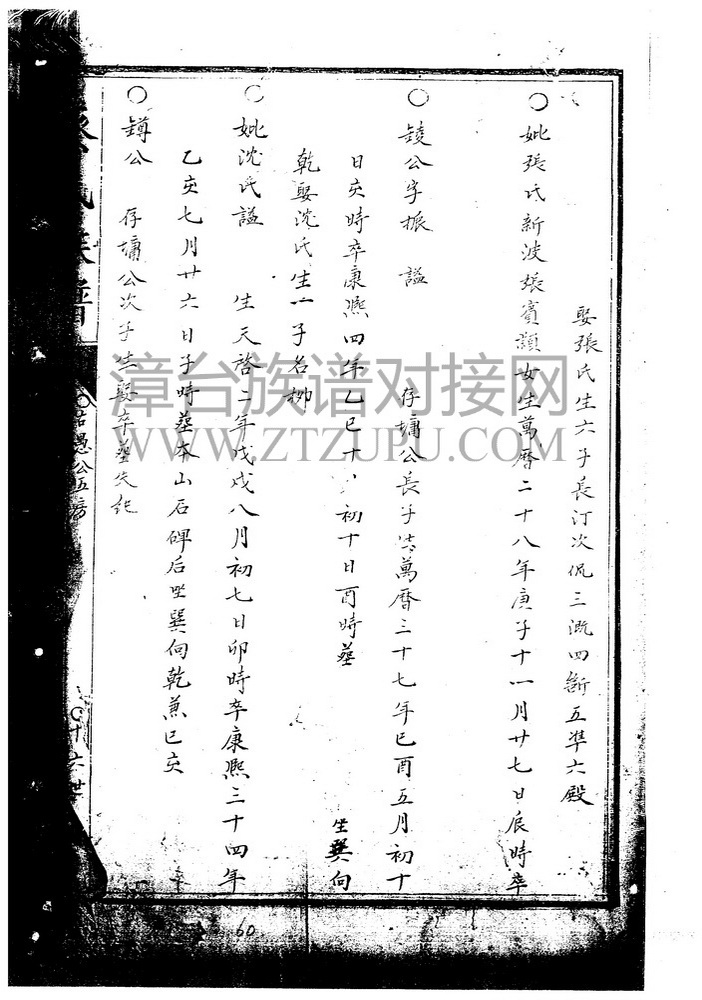 娶張氏生六子長汀次侃三溉四斷五準六殿
○妣張氏新波張賓顯女生萬曆二十八年庚子十一月廿七日辰時卒
○錂公字振 諡 存墉公長子生萬曆三十七年己酉五月初十
日亥時卒康熙四年乙巳十 初十日酉時塟 坐巽向
乾娶沈氏生一子名柳
○妣沈氏諡 生天啓二年戊戌八月初七日卯時卒康熙三十四年
乙亥七月廿六日子時塟本山石碑后坐巽向乾兼巳亥
○鐏公 存墉公次子生娶卒塟失紀
氏族譜
○古愚公五房
○十六世
60
漳台族谱对接网
WWW.ZTZUPU.COM